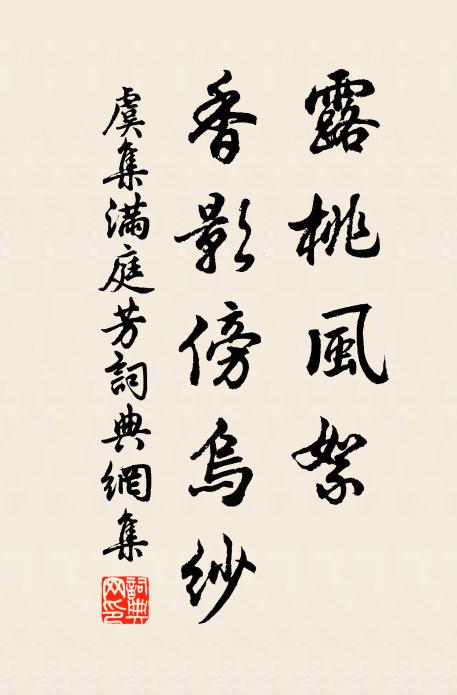 露桃風絮
香影傍烏紗
虞集滿庭芳詞典網集
詞典網印